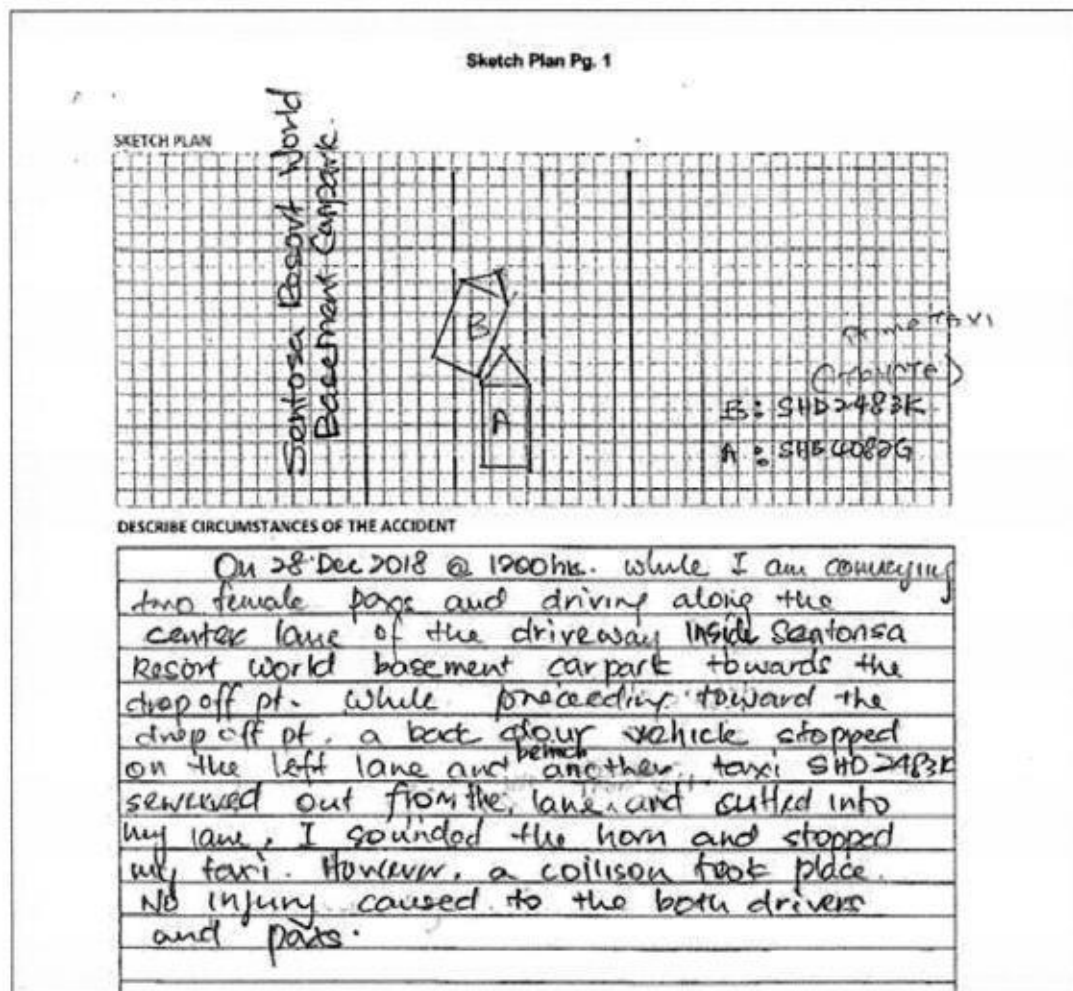 Sketch Plan Pg. 1
SKETCH PLAN
Sentosa Resort World
Basement Carpark.
B
A
Prime TAXI
B: SHD2483K
A: SHB4082G
DESCRIBE CIRCUMSTANCES OF THE ACCIDENT
On 28 Dec 2018 @ 1200hrs. while I am conveying
two female paxs and driving along the
center lane of the driveway inside Sentonsa
Resort world basement carpark towards the
drop off pt. While proceeding toward the
drop off pt. a back colour vehicle stopped
on the left lane and another taxi SHD2483K
sewerved out from the lane and cutted into
my lane. I sounded the horn and stopped
my taxi. However, a coilison took place.
No injury caused to the both drivers
and paxs.